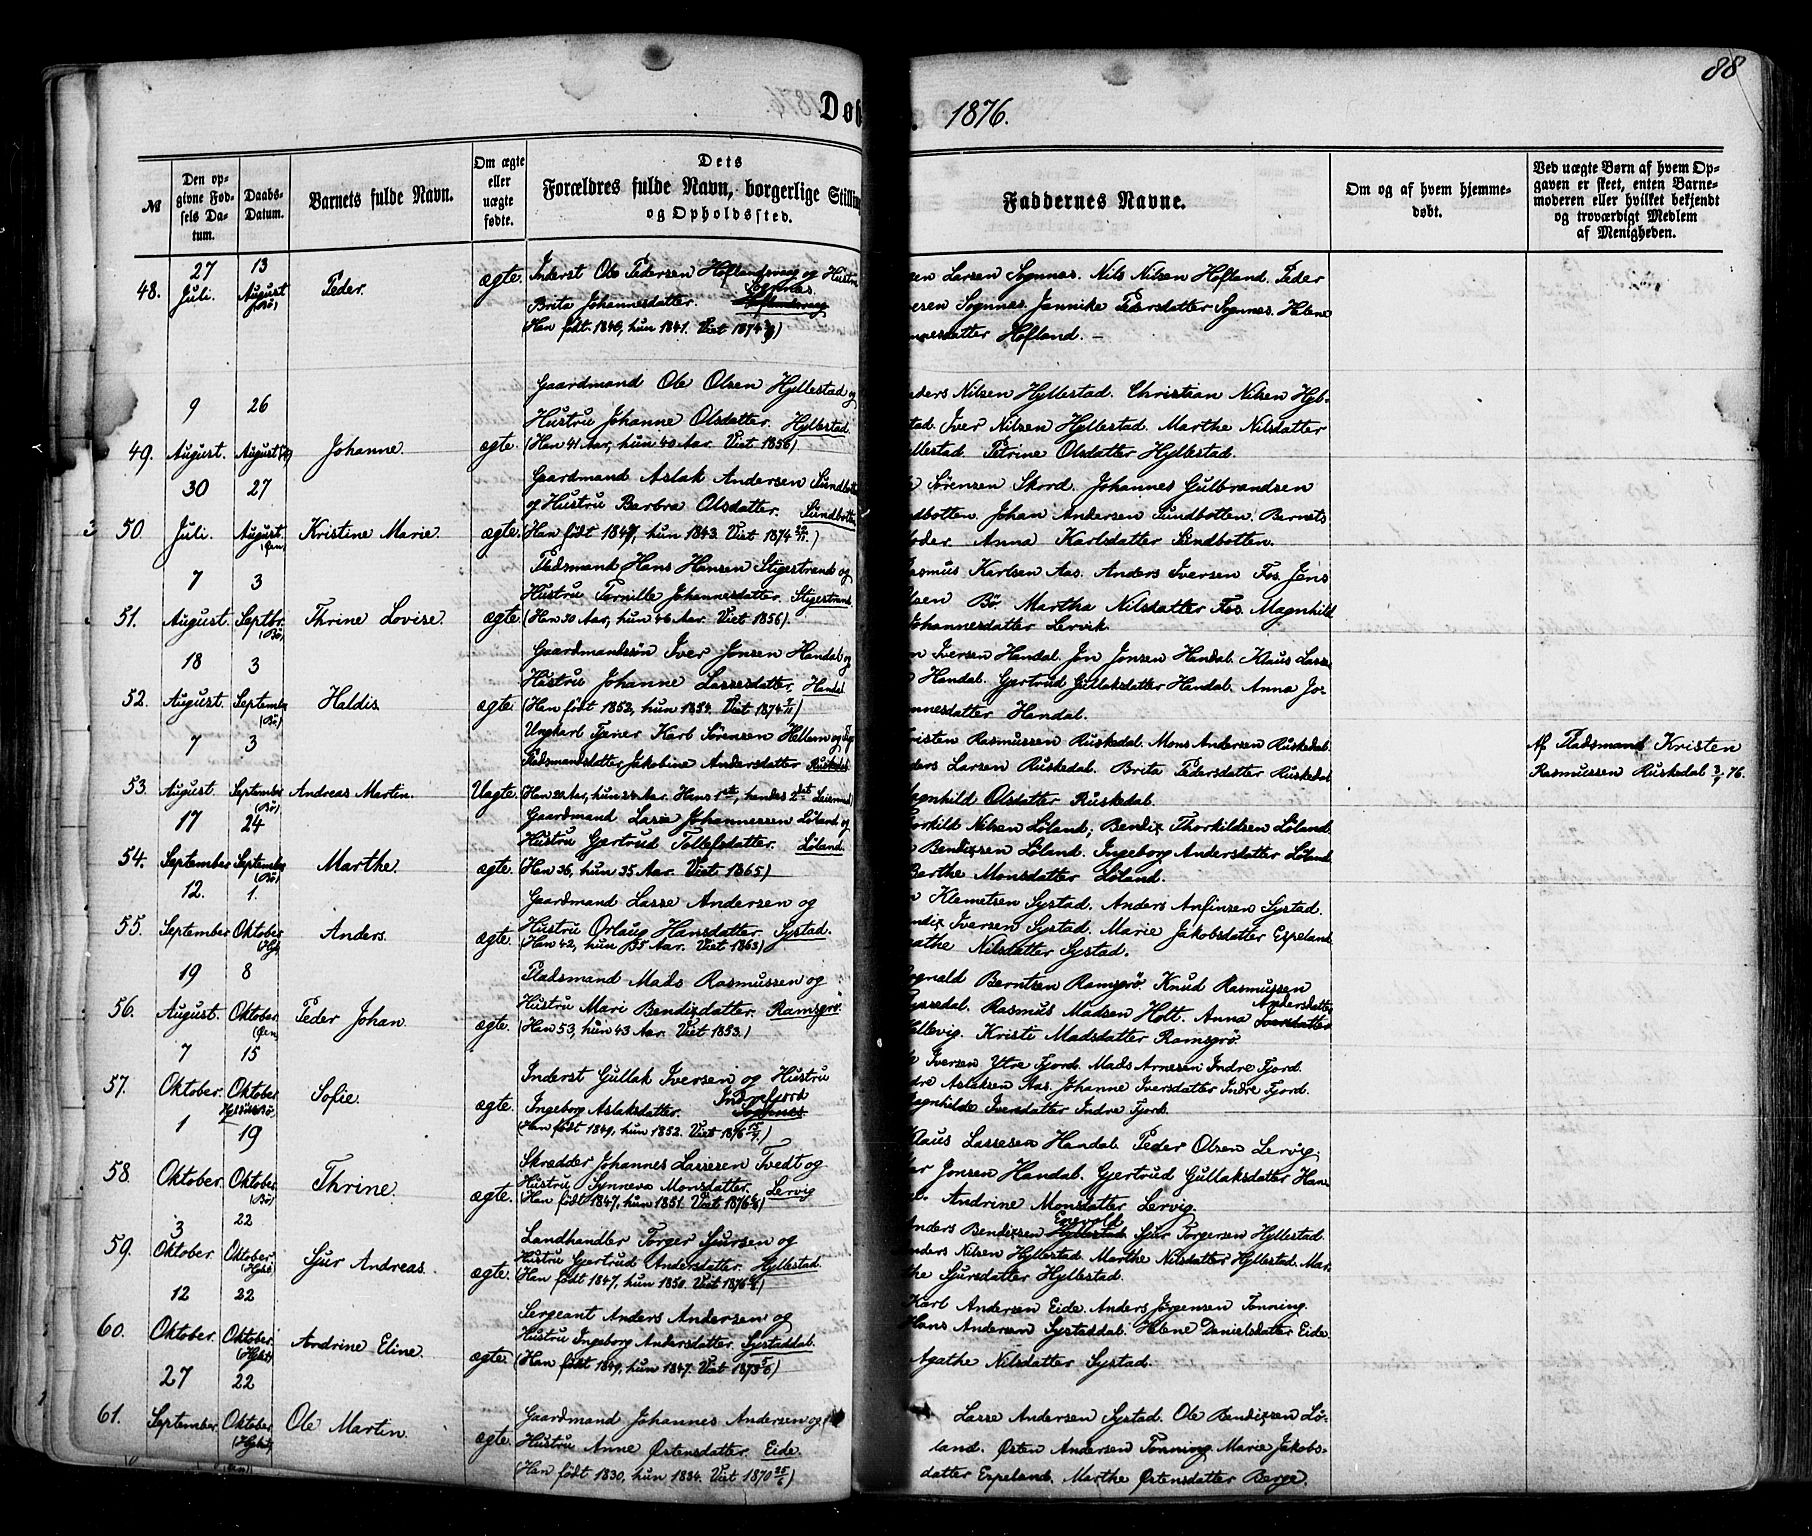 88
Døb
1876.
№
Den op-
givne Fød-
sels Da-
tum.
Daabs-
Datum.
Barnets fulde Navn.
Om ægte
eller
uægte
fødte.
Dets
Forældres fulde Navn, borgerlige Stilling
og Opholdssted.
Faddernes Navne.
Om og af hvem hjemme-
døbt.
Ved uægte Børn af hvem Op-
gaven er skeet, enten Barne-
moderen eller hvilket bekjendt
og troværdigt Medlem
af Menigheden.
48.
27
Juli.
13
August
Peder.
ægte.
Inderst Ole Pedersen Hoflandsveeg og Hustru
Brita Johannesdatter. Sognnes.
(Han født 1840, hun 1841. Viet 1874)
sen Larsen Sognnes. Nils Nilsen Hofland. Peder
eren Sognnes. Jannike Pedersdatter Sognnes. Helene
nnesdatter Hofland. —
49.
9
August.
26
August
Johanne.
ægte.
Gaardmand Ole Olsen Hyllestad og
Hustru Johanne Olsdatter. Hyllestad.
(Han 41 Aar, hun 40 Aar. Viet 1856)
nders Nilsen Hyllestad. Christian Nilsen Hyl-
stad. Iver Nilsen Hyllestad. Marthe Nilsdatter
yllestad. Petrine Olsdatter Hyllestad.
50.
30
Juli.
27
August.
(Øen)
Kristine Marie.
ægte.
Gaardmand Aslak Andersen Sundbotten
og Hustru Barbra Olsdatter. Sundbotten
(Han født 1847, hun 1843. Viet 1874 22/11.)
Sørensen Skord. Johannes Gulbrandsen
ndbotten. Johan Andersen Sundbotten. Barnets
oder Anna Karlsdatter Sundbotten.
51.
7
August.
3
Septbr.
(Bø)
Thrine Lovise.
ægte.
Pladsmand Hans Hansen Stigestrand og
Hustru Pernille Johannesdatter. Stigestrand.
(Han 50 Aar, hun 46 Aar. Viet 1856)
asmus Karlsen Aas. Anders Iversen Fos. Jens
lsen Bø. Martha Nilsdatter Fos. Magnhild
Johannesdatter Lervik.
52.
18
August.
3
September
(Bø)
Haldis
ægte.
Gaardmandssøn Iver Jonsen Handal og
Hustru Johanne Lassesdatter. Handal
(Han født 1852, hun 1854. Viet 1874)
n Iversen Handal. Jon Jonsen Handal. Klaus Lasse
Handal. Gjertrud Gullaksdatter Handal. Anna Jo-
nnesdatter Handal.
53.
7
August.
3
September
(Bø)
Andreas Martin.
Uægte.
Ungkarl Tjener Karl Sørensen Hellem og Pige
Pladsmandsdatter Jakobine Andersdatter Ruskedal
(Han 20 Aar, hun 24 Aar. Hans 1ste, hendes 2det Leiermaal)
risten Rasmussen Ruskedal. Mons Andersen Ruskedal.
ders Larsen Ruskedal. Brita Pedersdatter Ruskedal
agnhild Olsdatter Ruskedal.
Af Pladsmand Kristen
Rasmussen Ruskedal 3/9 76.
54.
17
September
24
September
(Bø)
Marthe.
ægte.
Gaardmand Lasse Johannessen Løland og
Hustru Gjertrud Tollefsdatter. Løland.
(Han 36, hun 35 Aar. Viet 1865)
horkild Nilsen Løland; Bendix Thorkildsen Løland.
Bendixsen Løland. Ingeborg Andersdatter Løland.
Berthe Monsdatter Løland.
55.
12.
September
1.
Oktober
Anders.
ægte.
Gaardmand Lasse Andersen og
Hustru Orlaug Hansdatter. Systad.
(Han 42, hun 35 Aar. Viet 1863)
Klemetsen Systad. Anders Anfinsen Systad.
ndix Iversen Systad. Marie Jakobsdatter Espeland.
gathe Nilsdatter Systad.
56.
19
August.
8
Oktober
(Øen)
Peder Johan.
ægte.
Pladsmand Mads Rasmussen og
Hustru Mari Bendixdatter. Ramsgrø.
(Han 53, hun 43 Aar. Viet 1853.)
ognald Berntsen Ramsgrø. Knud Rasmussen
Rasmus Madsen Holt. Anna Andersdatter Iversdatter
ellevig. Kristi Madsdatter Ramsgrø.
57.
7
Oktober.
15
Oktober.
Sofie.
ægte.
Inderst Gullak Iversen og Hustru
Ingeborg Aslaksdatter. Indrefjord Sognnes
(Han født 1849, hun 1852. Viet 1876)
Iversen Ytre Fjord. Mads Arnesen Indre Fjord.
dre Aslaksen Aas. Johanne Iversdatter Indre Fjord.
agnhilde Iversdatter Indre Fjord.
58.
1
Oktober.
19
Oktober.
(Bø)
Thrine.
ægte.
Skrædder Johannes Lassesen Tvedt og
Hustru Synneva Monsdatter. Lervig
(Han født 1847, hun 1851. Viet 1876)
Klaus Lassesen Handal. Peder Olsen Lervig.
er Jonsen Handal. Gjertrud Gullaksdatter Han-
Andrine Monsdatter Lervig.
59.
3
Oktober.
22
Oktober
Sjur Andreas.
ægte.
Landhandler Torger Sjursen og
Hustru Gjertrud Andersdatter. Hyllestad.
(Han født 1847, hun 1850. Viet 1876)
Anders Bendixsen Hyllestad. Sjur Torgersen Hyllestad.
nders Nilsen Hyllestad. Marthe Nilsdatter Hyllestad. Mar-
the Sjursdatter Hyllestad.
60.
12
Oktober.
22
Oktober.
Andrine Eline.
ægte.
Sergeant Anders Andersen og
Hustru Ingeborg Andersdatter. Systaddal.
(Han født 1849, hun 1847. Viet 1873)
Karl Andersen Eide. Anders Jørgensen Tonning.
Hans Andersen Systaddal. Helene Danielsdatter Eide.
Agathe Nilsdatter Systad.
61.
27
September.
22
Oktober
Ole Martin.
ægte.
Gaardmand Johannes Andersen og
Hustru Anne Østensdatter. Eide.
(Han født 1830, hun 1834. Viet 1870 25/6)
Lasse Andersen Systad. Ole Bendixsen Lø-
land. Østen Andersen Tonning. Marie Jakobs-
datter Espeland. Marthe Østensdatter Berge.